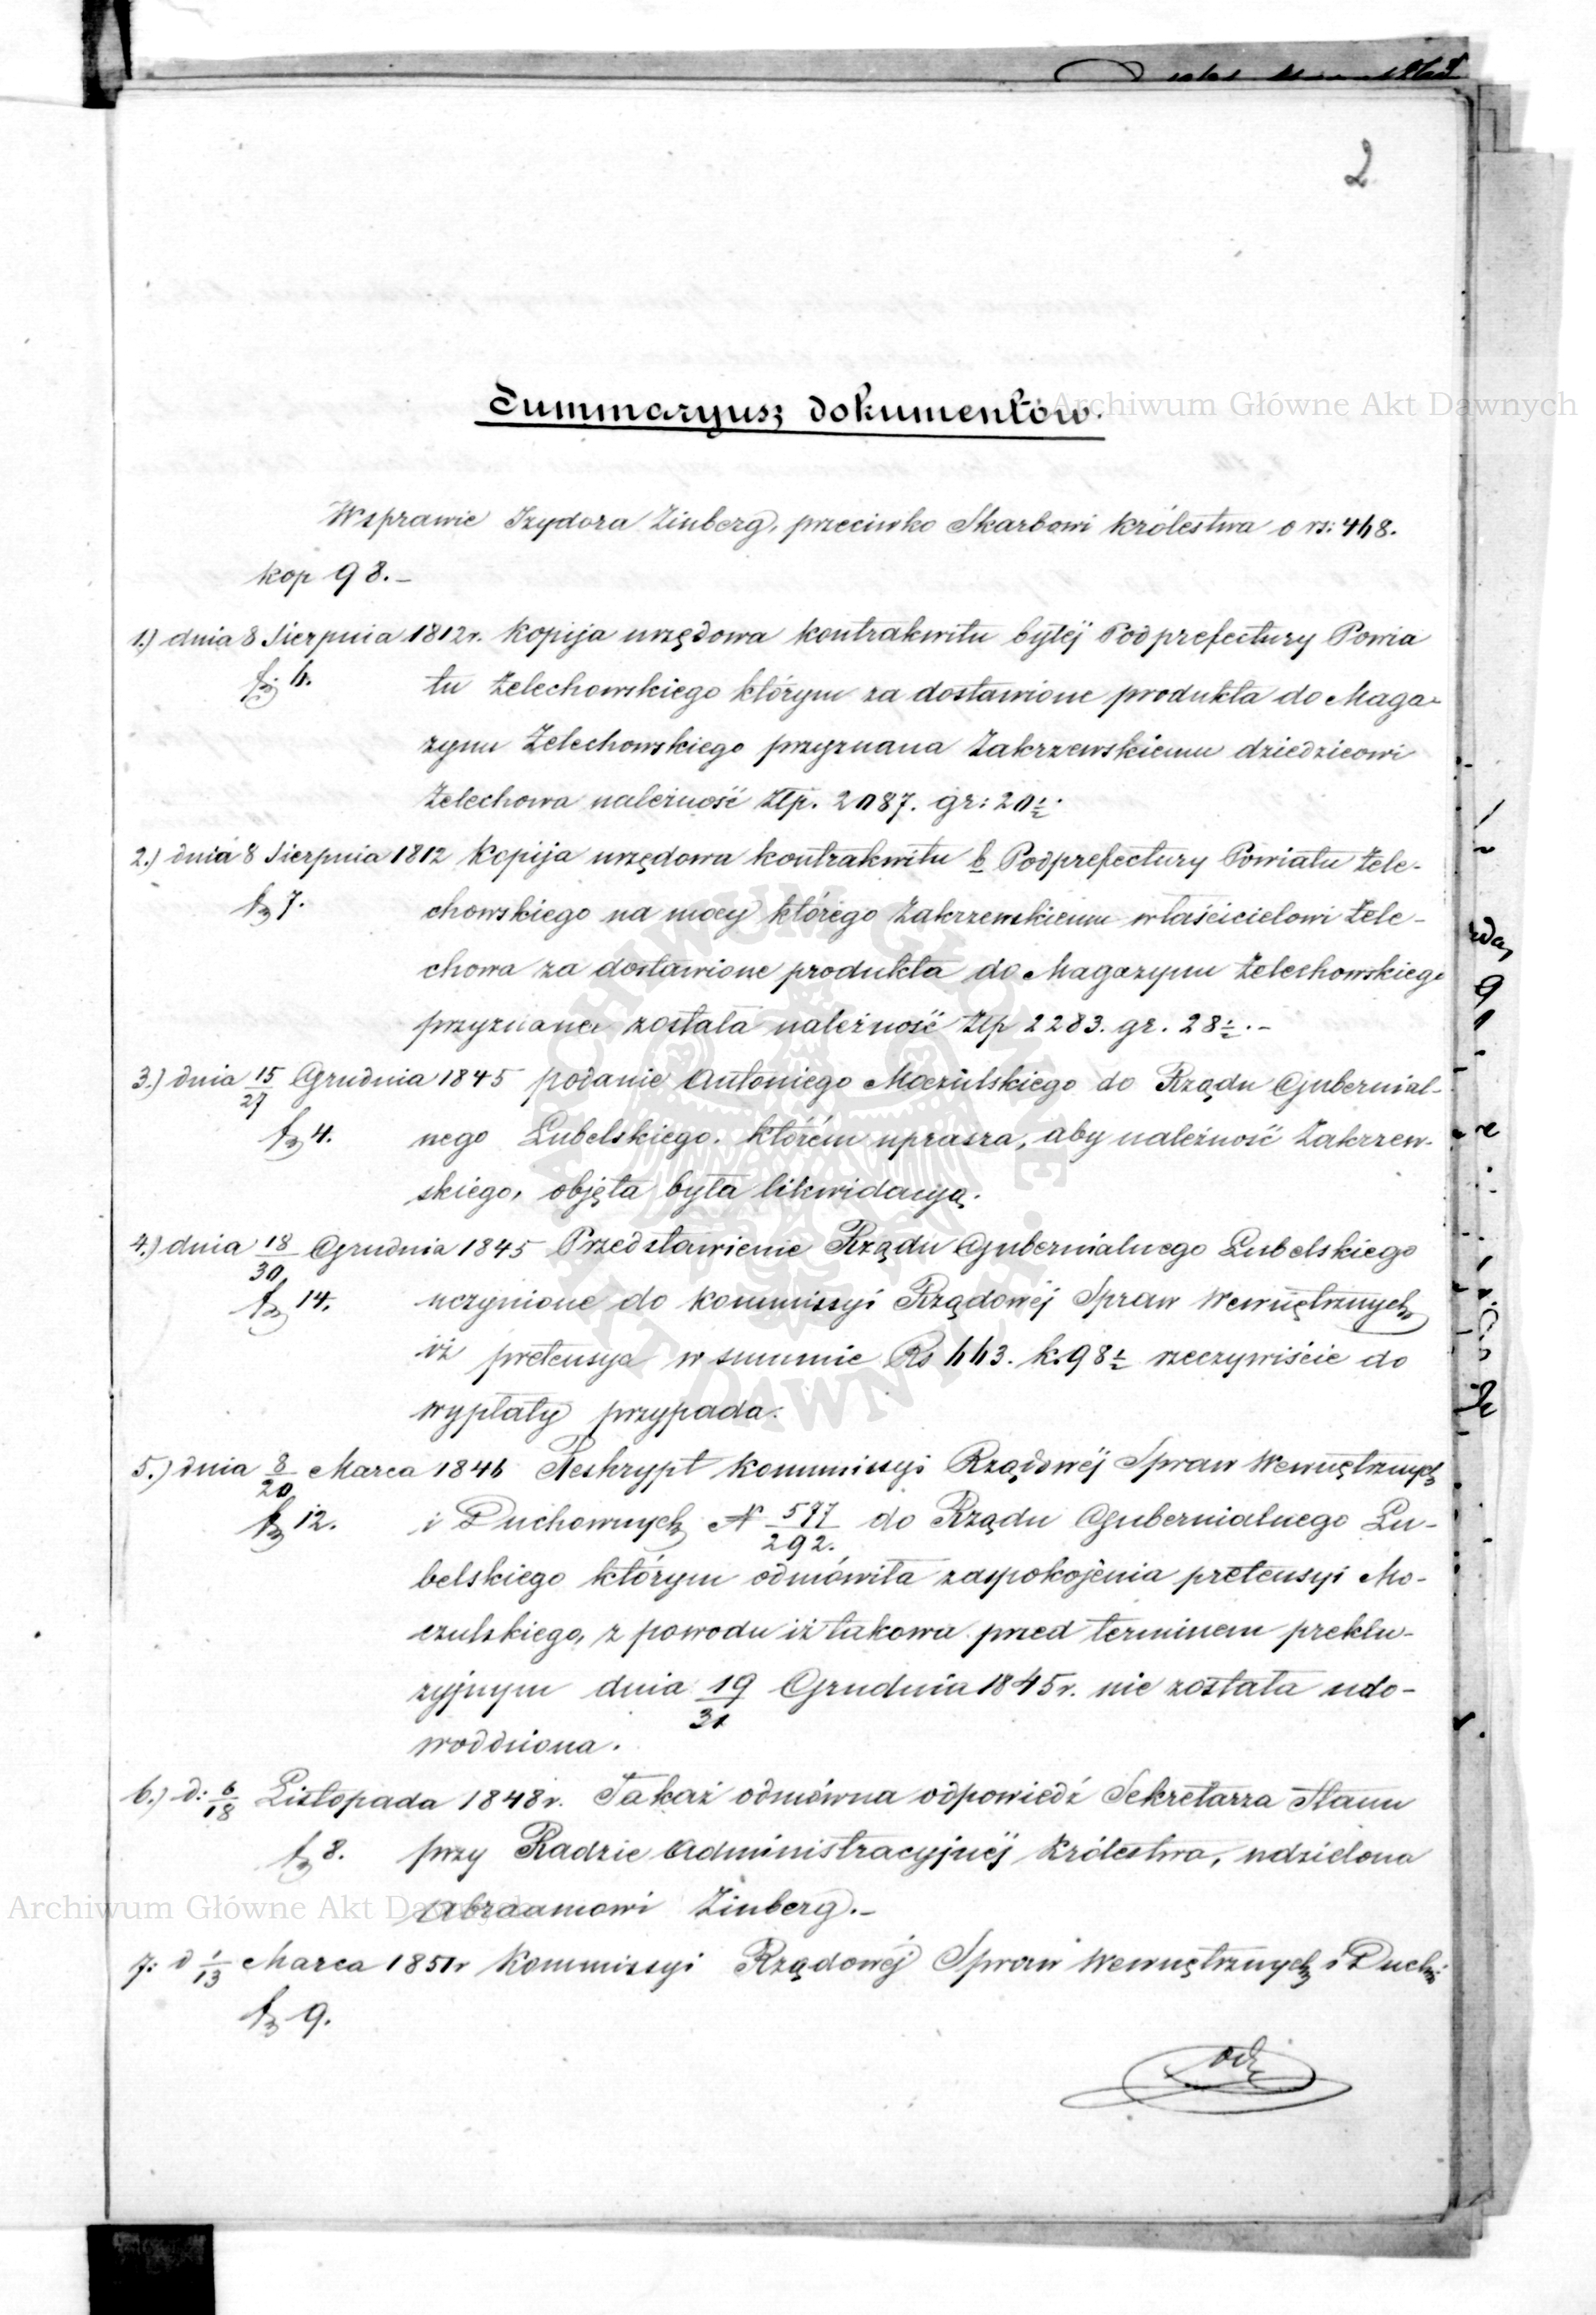 2
Summaryusz dokumentów.
W sprawie Izydora Zinberg, przeciwko Skarbowi Królestwa o rs: 468.
kop 98.–
1.) dnia 8 Sierpnia 1812r. Kopija urzędowa kontrakwitu byłéj Podprefectury Powia
6. tu Żelechowskiego którym za dostawione produkta do Maga-
zynu Żelechowskiego przyznana Zakrzewskiemu dziedzicowi
Żelechowa należność Złp. 2087. gr: 20½.
2.) dnia 8 Sierpnia 1812 Kopija urzędowa kontrakwitu b Podprefectury Powiatu Żele-
7. chowskiego na mocy którego Zakrzewskiemu właścicielowi Żele-
chowa za dostawione produkta do Magazynu Żelechowskiego
przyznana została należność Złp 2283. gr. 28½.–
3.) dnia 15/27 Grudnia 1845 podanie Antoniego Moczulskiego do Rządu Gubernial-
4. nego Lubelskiego, którém uprasza, aby należność Zakrzew-
skiego, objęta była likwidacyą.
4.) dnia 18/30 Grudnia 1845 Przedstawienie Rządu Gubernialnego Lubelskiego
14. uczynione do Kommissyi Rządowéj Spraw Wewnętrznych
iż pretensya w summie Rs 663. k. 98½ rzeczywiście do
wypłaty przypada.
5.) dnia 8/20 Marca 1846 Reskrypt Kommissyi Rządowéj Spraw Wewnętrznych
12. i Duchownych N 577/292. do Rządu Gubernialnego Lu-
belskiego którym odmówiła zaspokojenia pretensyi Mo-
czulskiego, z powodu iż takowa przed terminem preklu-
zyjnym dnia 19/31 Grudnia 1845r. nie została udo-
wodniona.
6.) d: 6/18 Listopada 1848r. Takaż odmówna odpowiedź Sekretarza Stanu
8. przy Radzie Administracyjnéj Królestwa, udzielona
Abraamowi Zinberg.–
7: d 1/13 Marca 1851r Kommissyi Rządowéj Spraw Wewnętrznych i Duch:
9.
Archiwum Główne Akt Dawnych
ARCHIWUM GŁÓWNE AKT DAWNYCH
Archiwum Główne Akt Dawnych